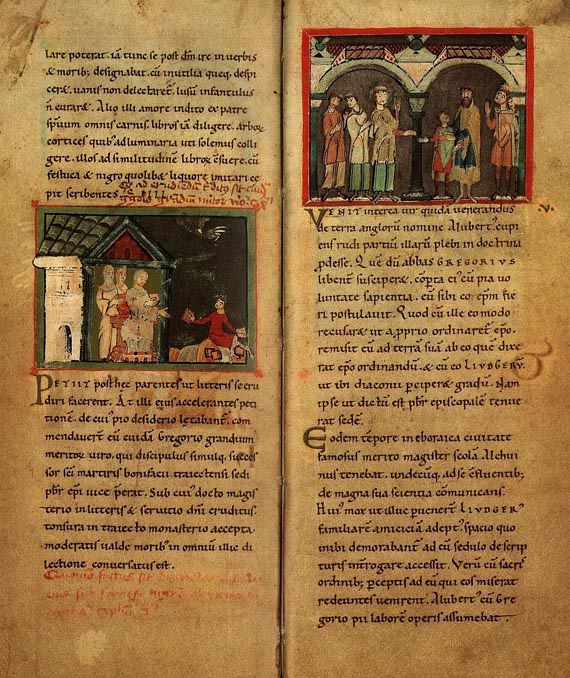 lare poterat. iā tunc se post dm̄ ire in verbis
& morib; designabat. cū inutilia queq; despi
ceret. uanis non delectaret. lusū infantulus
ñ curaret. Alio illi amore indito ex patre
spirituum omnis carnis. libros iā diligere. arborū
cortices quib; ad luminaria uti solemus colli
gere. illos ad similitudinē librorū c̄suere. cū
festuca & nigro quolib& liquore imitari ce
pit scribentes.
PETIIT posthec parentes ut litteris se eru
diri facerent. At illi eius accelerantes peti
tionē. de cui' pio desiderio letabant̄. com
mendauert̄ eū cuidā Gregorio grandium
meritorū uiro. qui discipulus simulq; succes
sor sc̄i martiris bonifacii traiectensi sedi
pbr̄ ep̄i uice p̄erat. Sub cui' docto magis
terio in litteris & seruitio dn̄i eruditus.
tonsura in traiecto monasterio accepta.
moderatis ualde morib; in omniū illic di
lectione conuersatus est.
VENIT interea uir quidā uenerandus
de terra anglorū nomine Alubert'. cupi
ens rudi partiū illarū plebi in doctrina
pdesse. Quē dū abbas GREGORIUS
libent̄ suscip̄et. cōpta ei' cū pia uo
luntate sapientia. eū sibi coepm̄ fie
ri postulauit. Quod cū ille eo modo
recusaret ut a pprio ordinaret̄ ep̄o.
remisit eū ad terrā suā ab eo quē dixe
rat ep̄o ordinandū. & cū eo LIUDGERŪ.
ut ibi diaconii p̄ciperet gradū. Nam
ipse ut dictū est pbr̄ episcopalē tenue
rat sedē.
Eodem tēpore in eboraica ciuitate
famosus merito magister scolā Alchui
nus tenebat. undecūq; ad se c̄fluentib;
de magna sua scientia cōmunicans.
Hui' mox ut illuc puener̄t LIUDGER'
familiarē amiciciā adept'. spacio quo
inibi demorabant̄ ad eū sedulo de scrip
turis int̄rogare accessit. Verū cū sacris
ordinib; pceptis ad eū qui eos miserat
redeuntes uenirent. Alubert' cū Gre
gorio pii laborē operis assumebat.